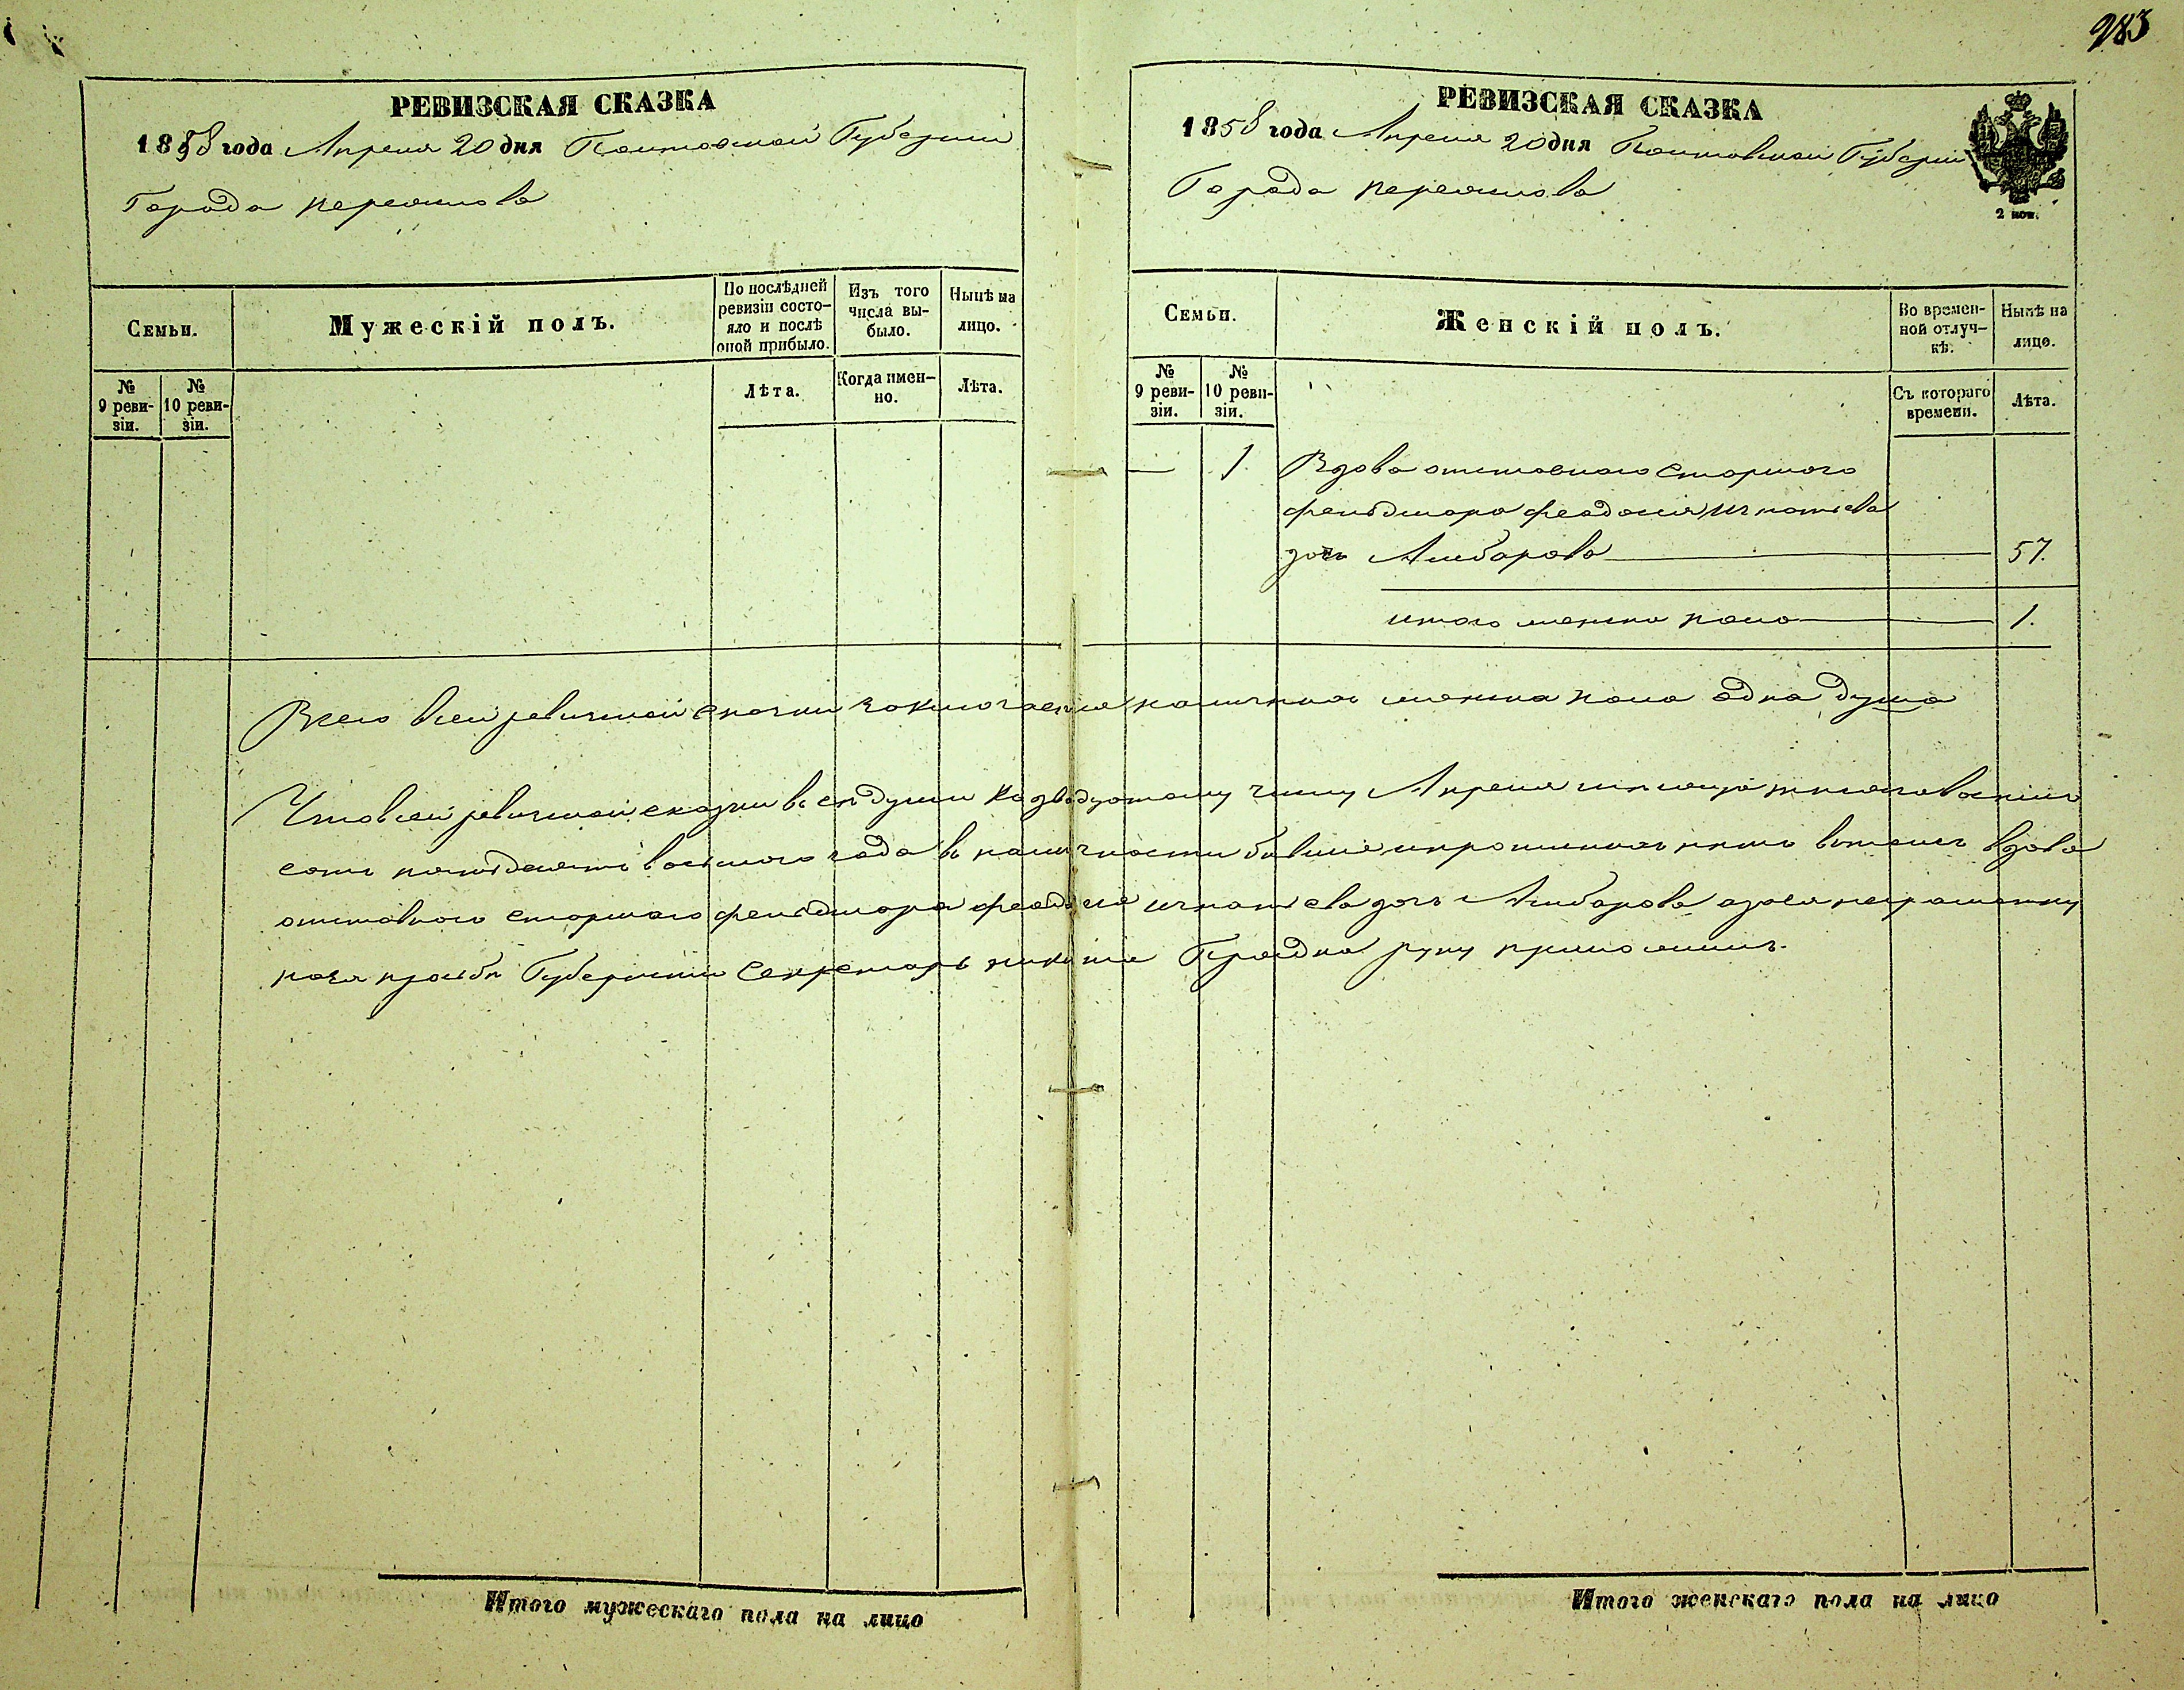 283
РЕВИЗСКАЯ СКАЗКА
1858 года Апреля 20 дня Полтавской Губернии
Города переяслова
Семьи.
Мужескій полъ.
По послѣдней ревизіи состо-
яло и послѣ оной прибыло.
Изъ того числа вы-
было.
Нынѣ на лицо.
№ 9 реви-
зіи.
№ 10 реви-
зіи.
Лѣта.
Когда имен-
но.
Лѣта.
РЕВИЗСКАЯ СКАЗКА
1858 года Апреля 20 дня Полтавской Губерніи
Города переяслова
2 коп.
Семьи.
Женскій полъ.
Во времен-
ной отлуч-
кѣ.
Нынѣ на лицо.
№ 9 реви-
зіи.
№ 10 реви-
зіи.
Съ котораго времени.
Лѣта.
— 1 Вдова отставнаго старшого
фельдшара феодосія игнатіева
дочь Амбарова 57.
итого женска пола 1.
Всего всей ревизской сказки заключается наличная женска пола одна душа
Что в сей ревизской сказки все души к двадцатому числу Апреля тысяча восемь
сотъ пятьдесятъ восьмого года в наличности бывшие нетъ вдова
отставного старшаго фельдшара феодосія игнатіева дочь Амбарова
просьбе Губернски Секретарь руку приложилъ.
Итого мужескаго пола на лицо
Итого женскаго пола на лицо